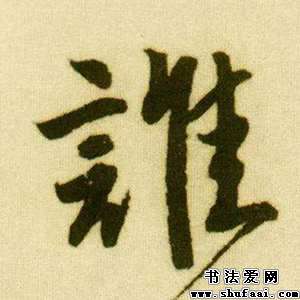 誰
书法爱网
www.shufaai.com